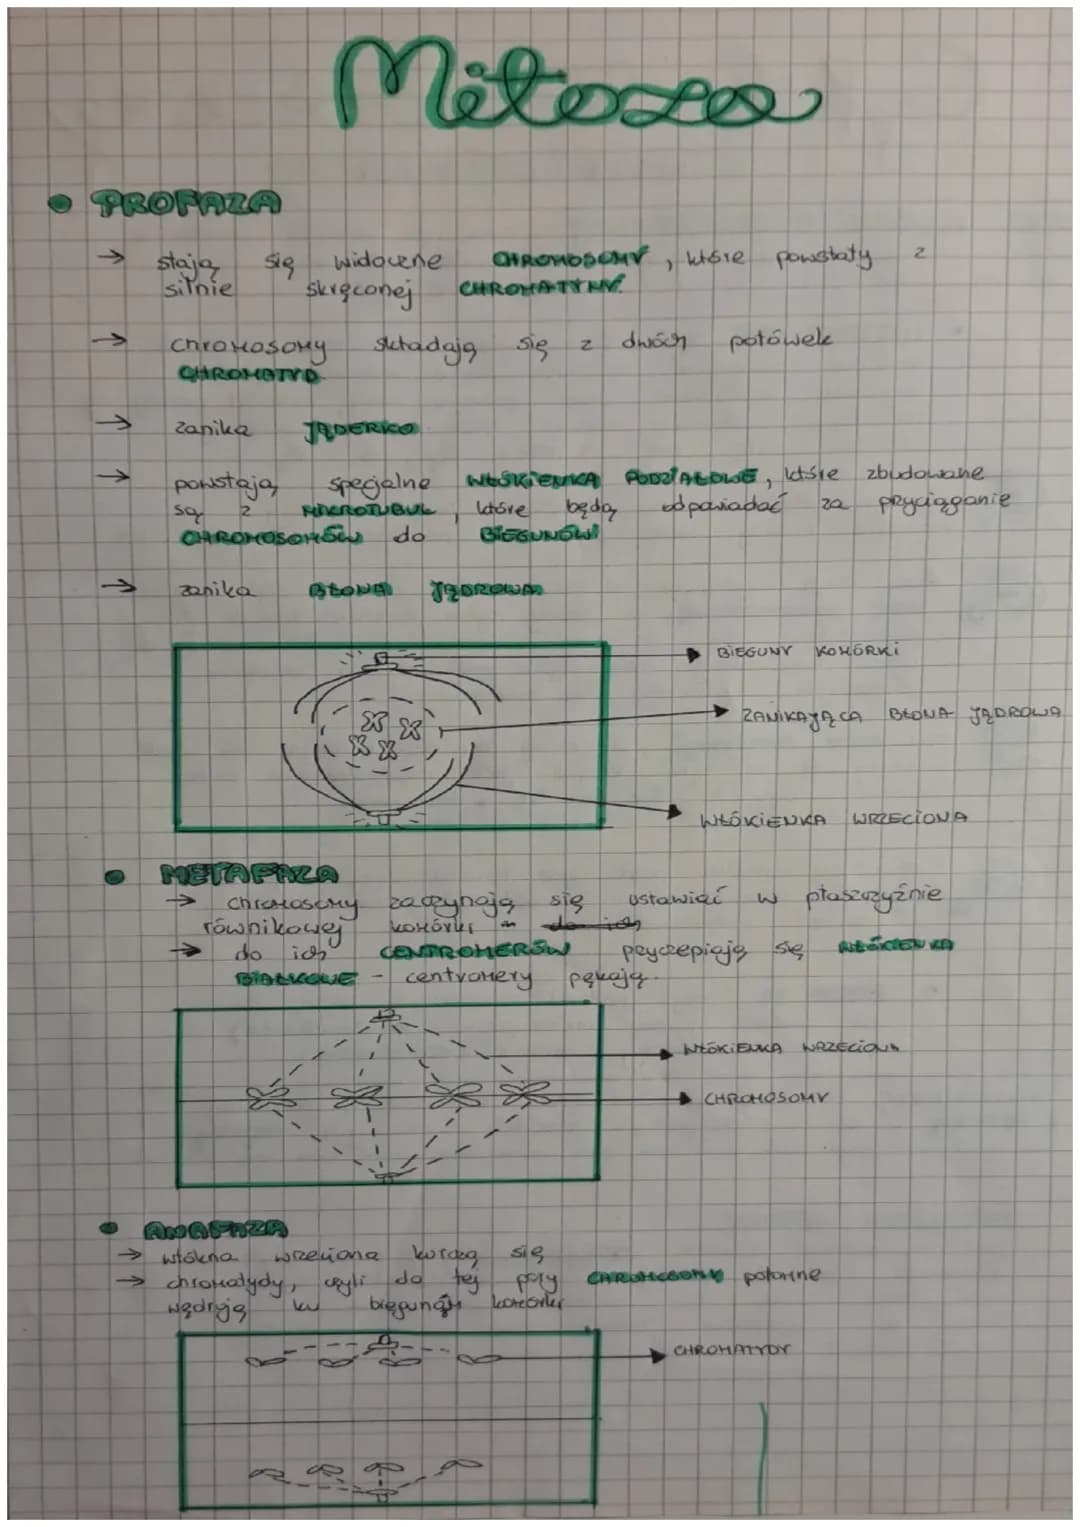 Mitoza
• PROFAZA
→ stają się widoczne CHROMOSOMY, które powstały z
silnie skręconej CHROMATYNY.
→ chromosomy składają się z dwóch połówek
CHROMATYD
→ zanika JĄDERKO
→ powstają specjalne WŁÓKIENKA PODZIAŁOWE, które zbudowane
są z MIKROTUBUL, które będą odpowiadać za przyciąganie
CHROMOSOMÓW do BIEGUNÓW
→ zanika BŁONA JĄDROWA
BIEGUNY KOMÓRKI
ZANIKAJĄCA BŁONA JĄDROWA
WŁÓKIENKA WRZECIONA
• METAFAZA
→ chromosomy zaczynają się ustawiać w płaszczyźnie
równikowej komórki do ich
→ do ich CENTROMERÓW przyczepiają się WŁÓKIENKA
BIAŁKOWE - centromery pękają.
WŁÓKIENKA WRZECIONA
CHROMOSOMY
• ANAFAZA
→ włókna wrzeciona kurczą się
→ chromatydy, czyli do tej pory CHROMOSOMY potomne
wędrują ku biegunom komórki
CHROMATYDY